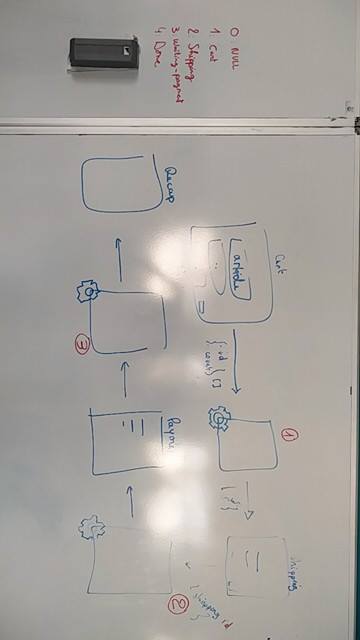 0. NULL
1. Cart
2. Shipping
3. Waiting-payment
4. Done
Cart
article
..
{ .id
count } []
1
shipping
shipping id
2
Recap
3